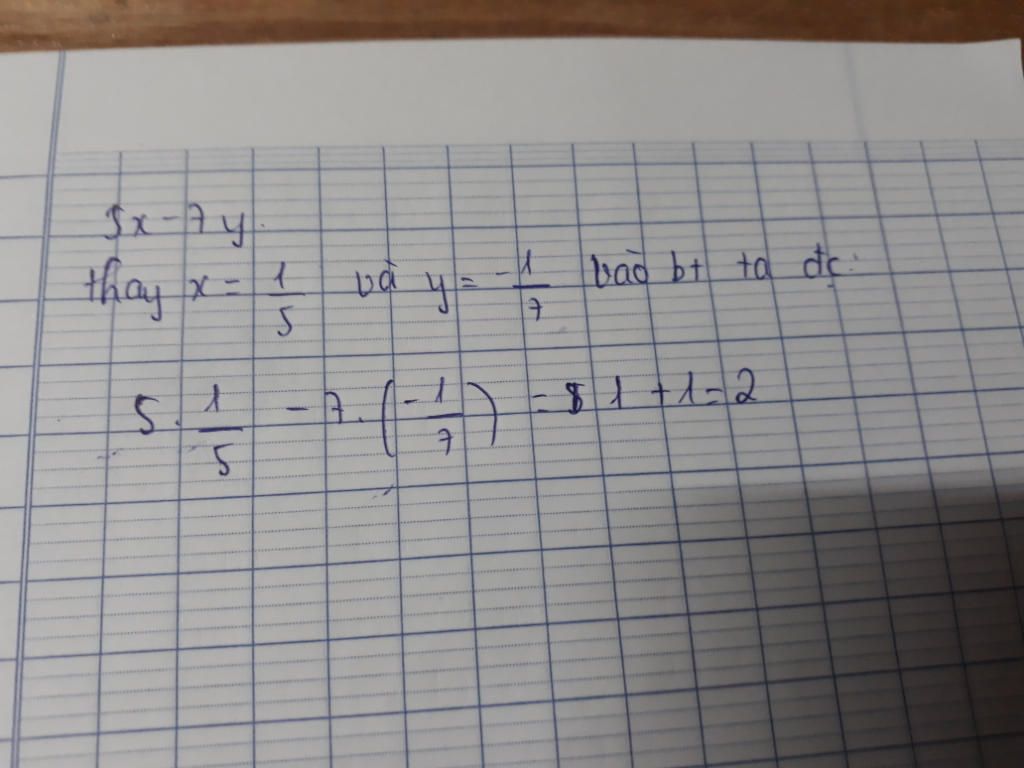 5x - 7y.
thay x = 1/5 và y = -1/7 vào bt ta đc:
5. 1/5 - 7. (-1/7) = 1 + 1 = 2